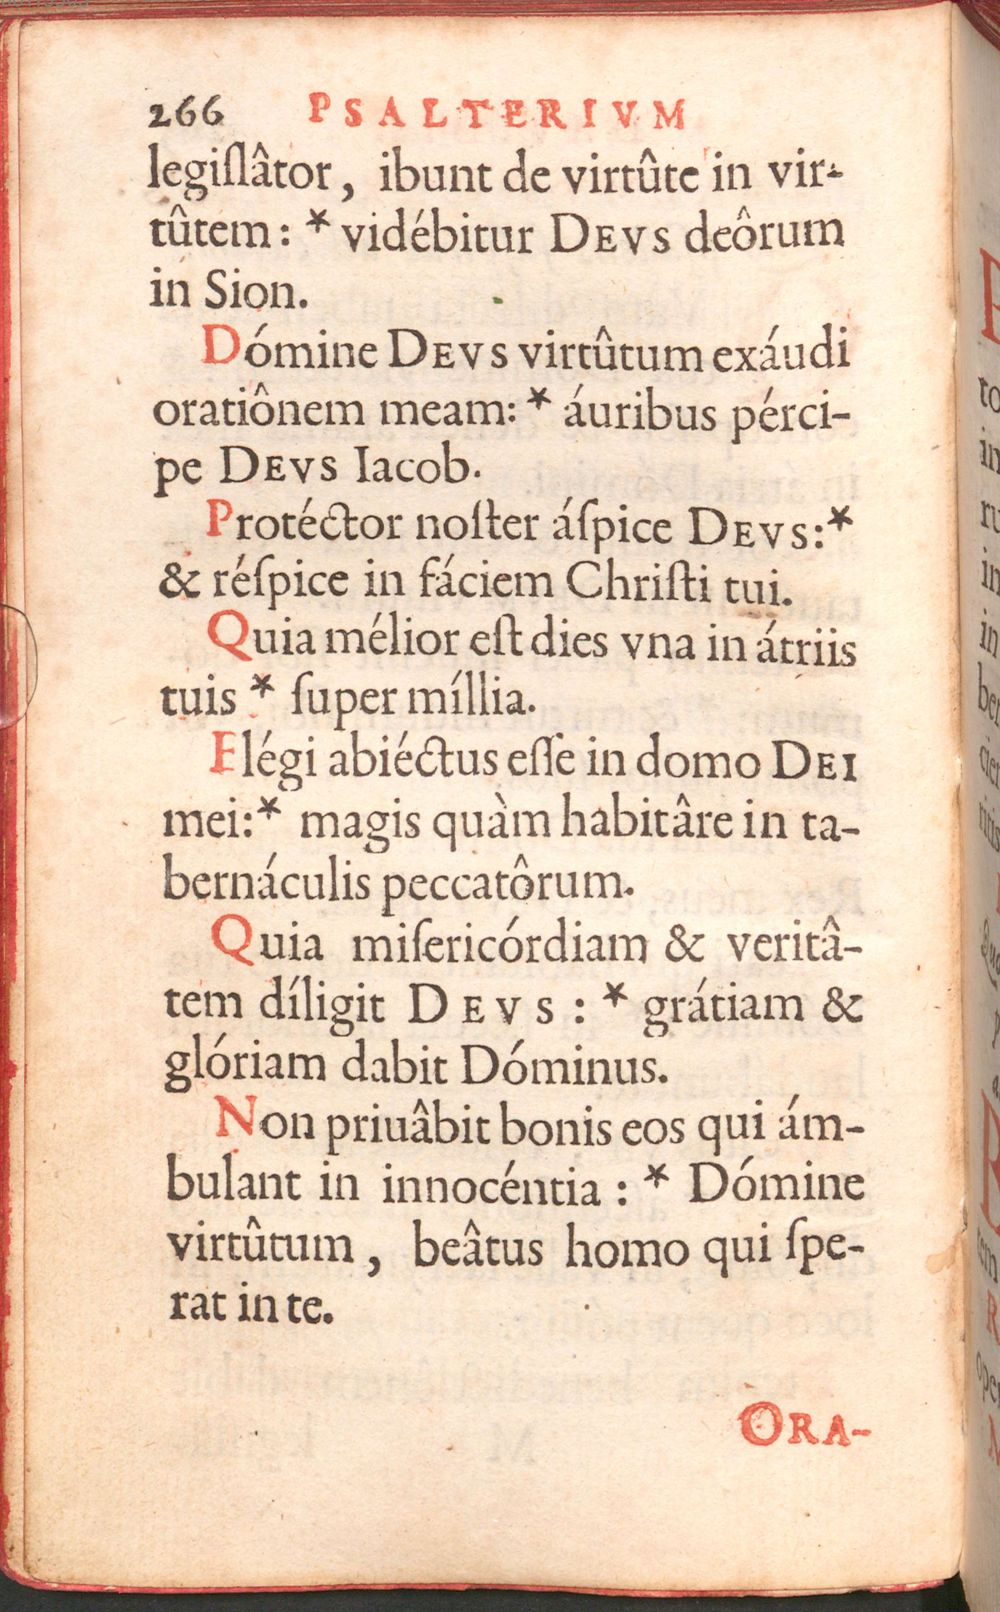 266 PSALTERIVM
legiſlâtor, ibunt de virtûte in vir-
tûtem: * vidébitur DEVS deôrum
in Sion.
Dómine DEVS virtûtum exáudi
oratiônem meam: * áuribus pérci-
pe DEVS Iacob.
Protéctor noſter áſpice DEVS: *
& réſpice in fáciem Chriſti tui.
Quia mélior eſt dies vna in átriis
tuis * ſuper míllia.
Elégi abiéctus eſſe in domo DEI
mei: * magis quàm habitâre in ta-
bernáculis peccatôrum.
Quia miſericórdiam & veritâ-
tem díligit DEVS: * grátiam &
glóriam dabit Dóminus.
Non priuâbit bonis eos qui ám-
bulant in innocéntia: * Dómine
virtûtum, beâtus homo qui ſpe-
rat in te.
ORA-